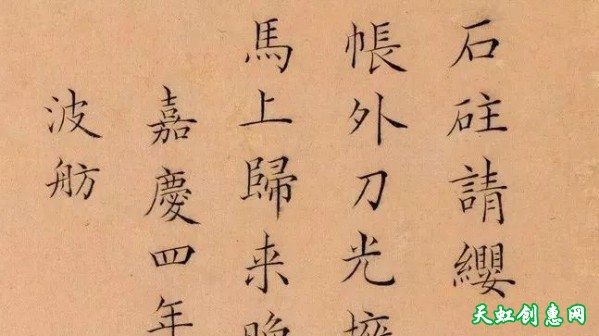 石砫請纓
帳外刀光
馬上歸来晚
嘉慶四年
波舫
天虹创惠网